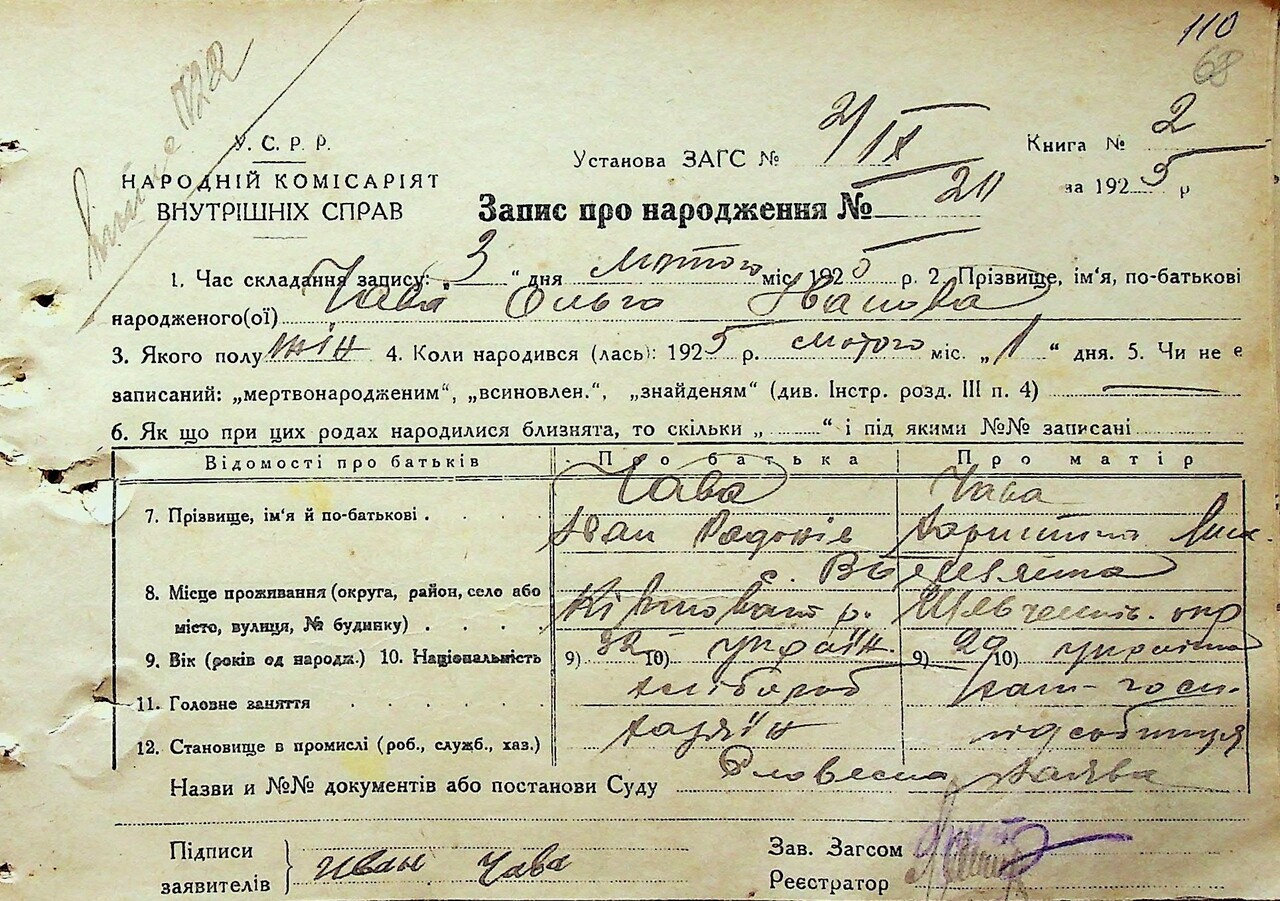 110
68
У. С. Р. Р.
НАРОДНІЙ КОМІСАРІЯТ
ВНУТРІШНІХ СПРАВ
Установа ЗАГС № 2/IX
Книга № 2
за 1925 р
Запис про народження № 20
1. Час складання запису: 3 “ дня лютого міс. 1925 р. 2. Прізвище, ім‘я, по-батькові
народженого(ої) Чава Ольга Іванова
3. Якого полу жін 4. Коли народився (лась): 1925 р. лютого міс. „1“ дня. 5. Чи не є
записаний: „мертвонародженим“, „всиновлен.“, „знайденям“ (див. Інстр. розд. III п. 4)
6. Як що при цих родах народилися близнята, то скільки „ “ і під якими №№ записані
Відомості про батьків Про батька Про матір
Чава Чава
7. Прізвище, ім‘я й по-батькові
Іван
с.
8. Місце проживання (округа, район, село або
місто, вулиця, № будинку) р. Шевченків. окр
9. Вік (років од народж.) 10. Національність 9) 32 10) україн. 9) 29 10) україн
11. Головне заняття хлібороб хат-госп.
12. Становище в промислі (роб., служб., хаз.) хазяїн підсобниця
Назви и №№ документів або постанови Суду Словесна заява
Підписи
заявителів } Иван Чава
Зав. Загсом
Реєстратор